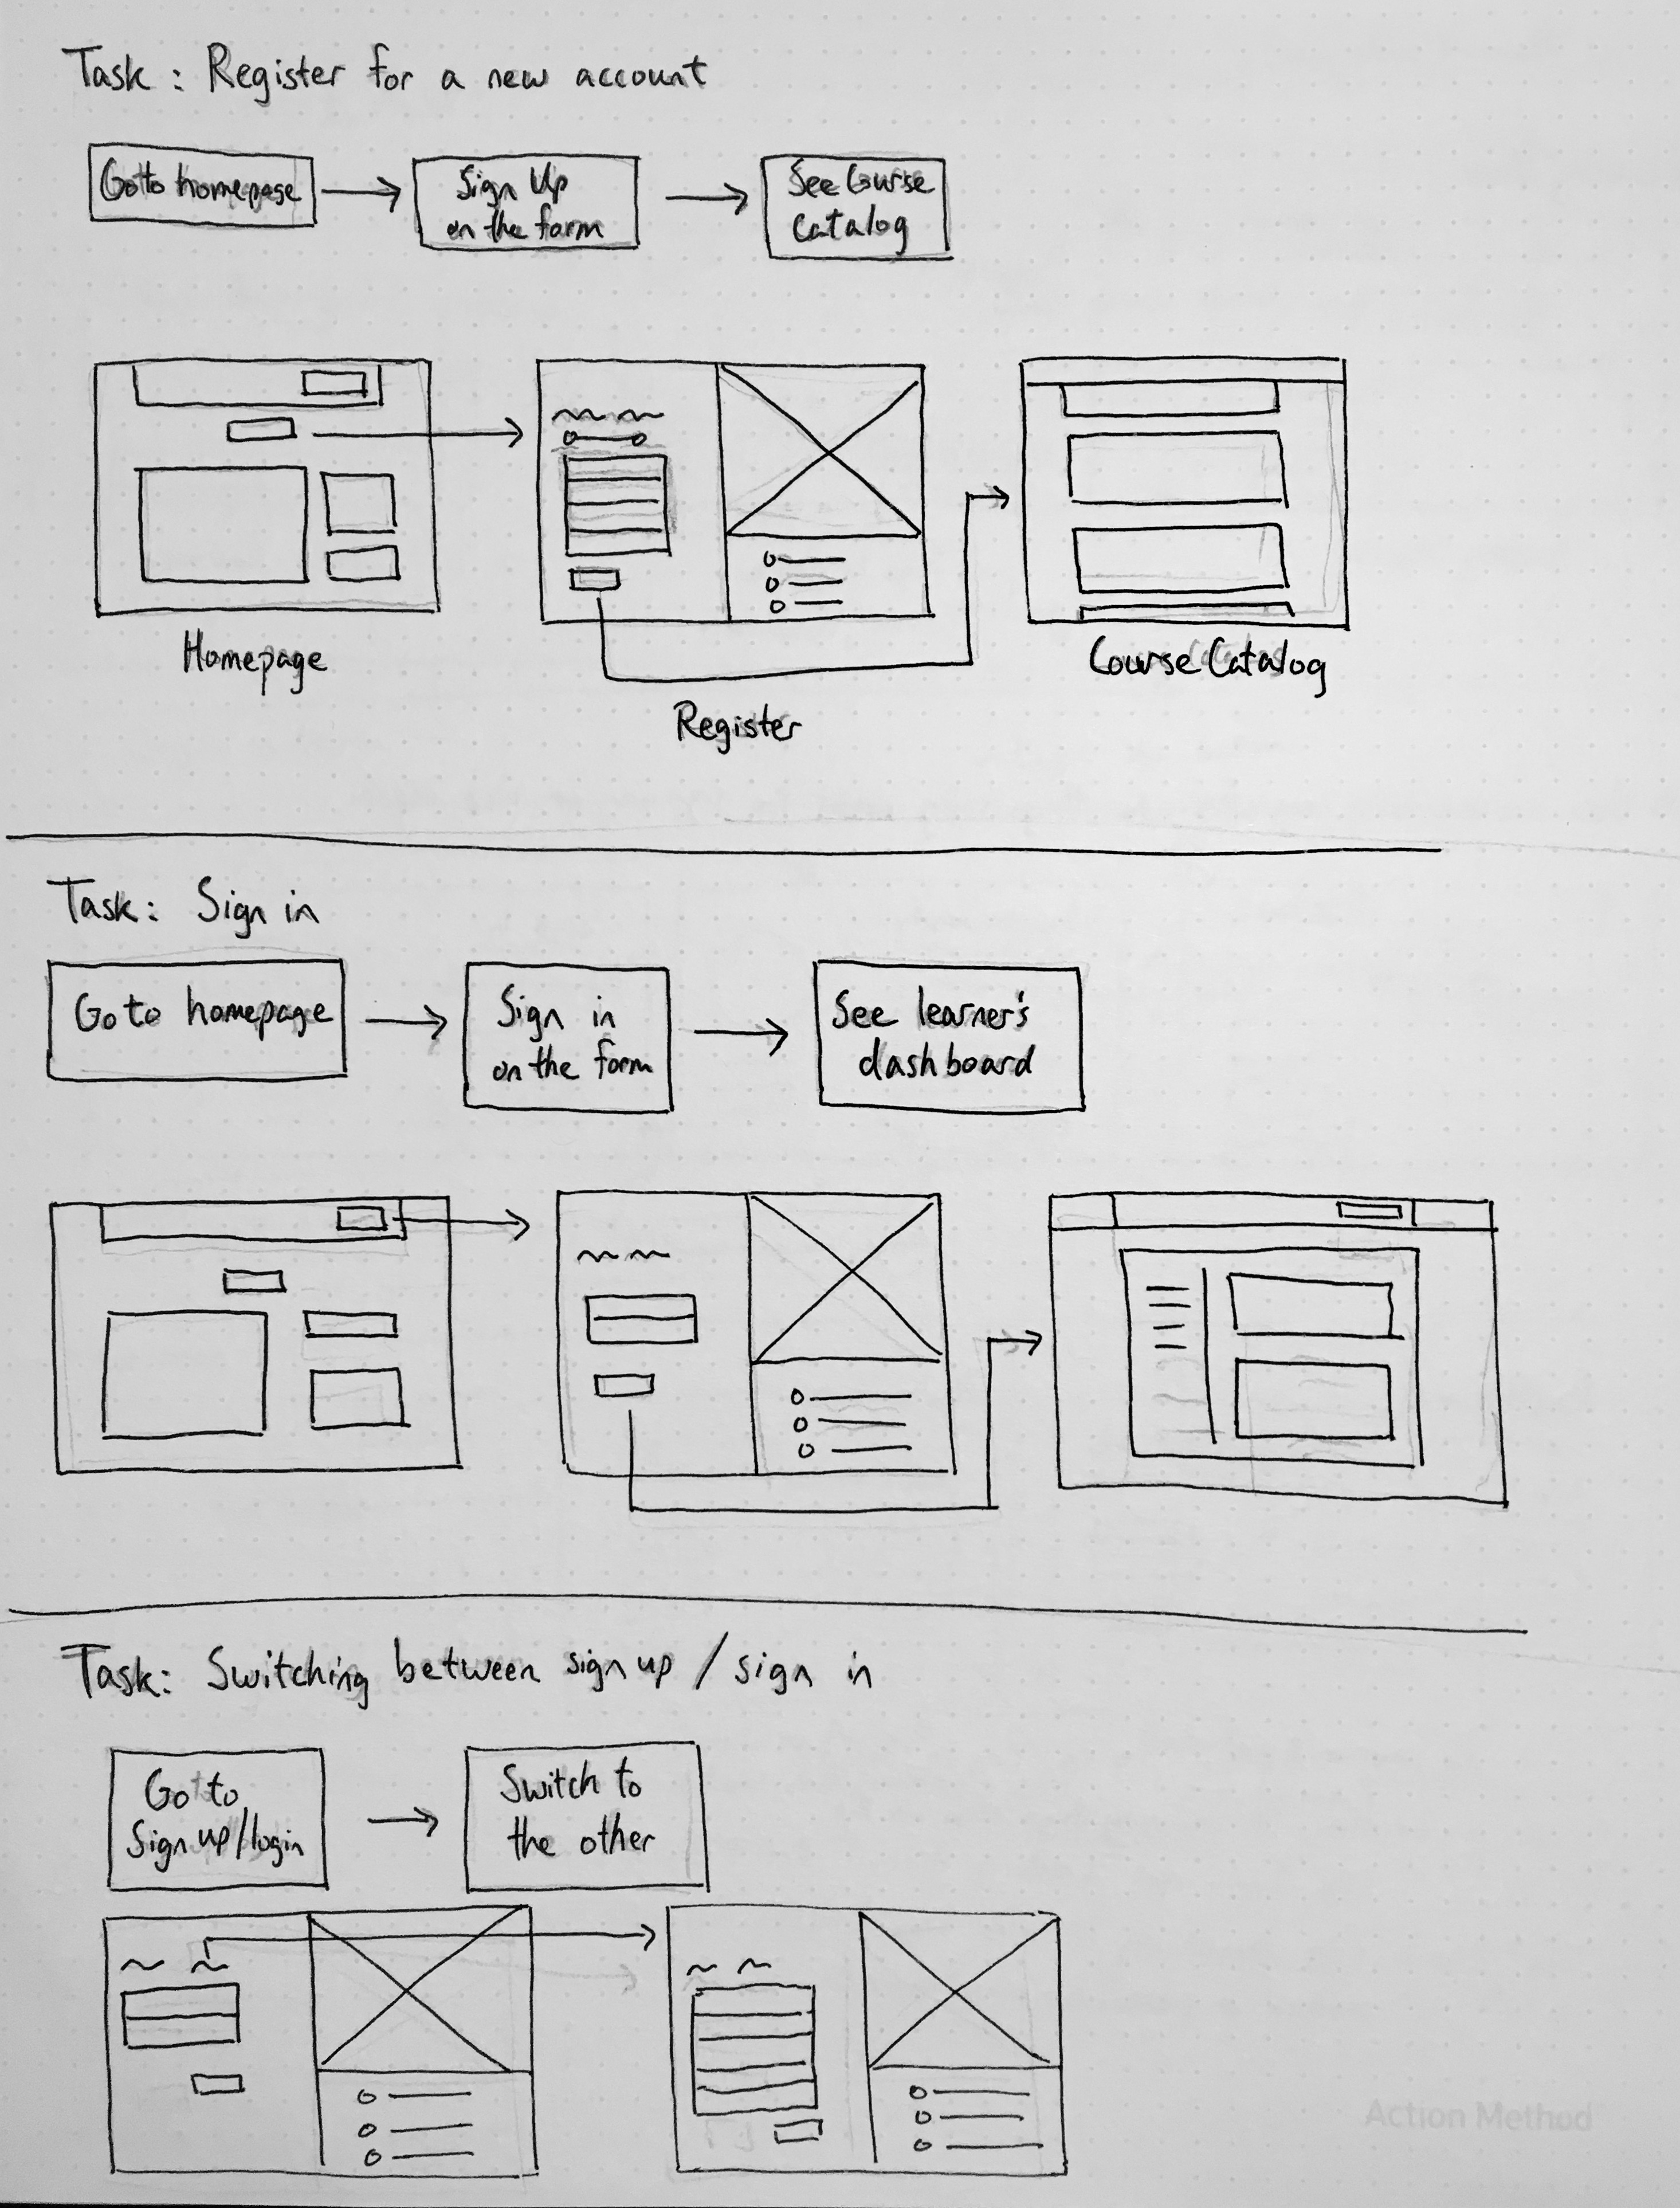 Task: Register for a new account
Go to homepage
Sign Up
on the form
See Course
Catalog
Homepage
Register
Course Catalog
Task: Sign in
Go to homepage
Sign in
on the form
See learner's
dashboard
Task: Switching between sign up / sign in
Go to
Sign up/login
Switch to
the other
Action Method